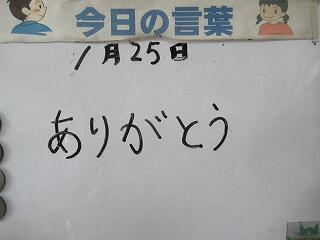 今日の言葉
1月25日
ありがとう